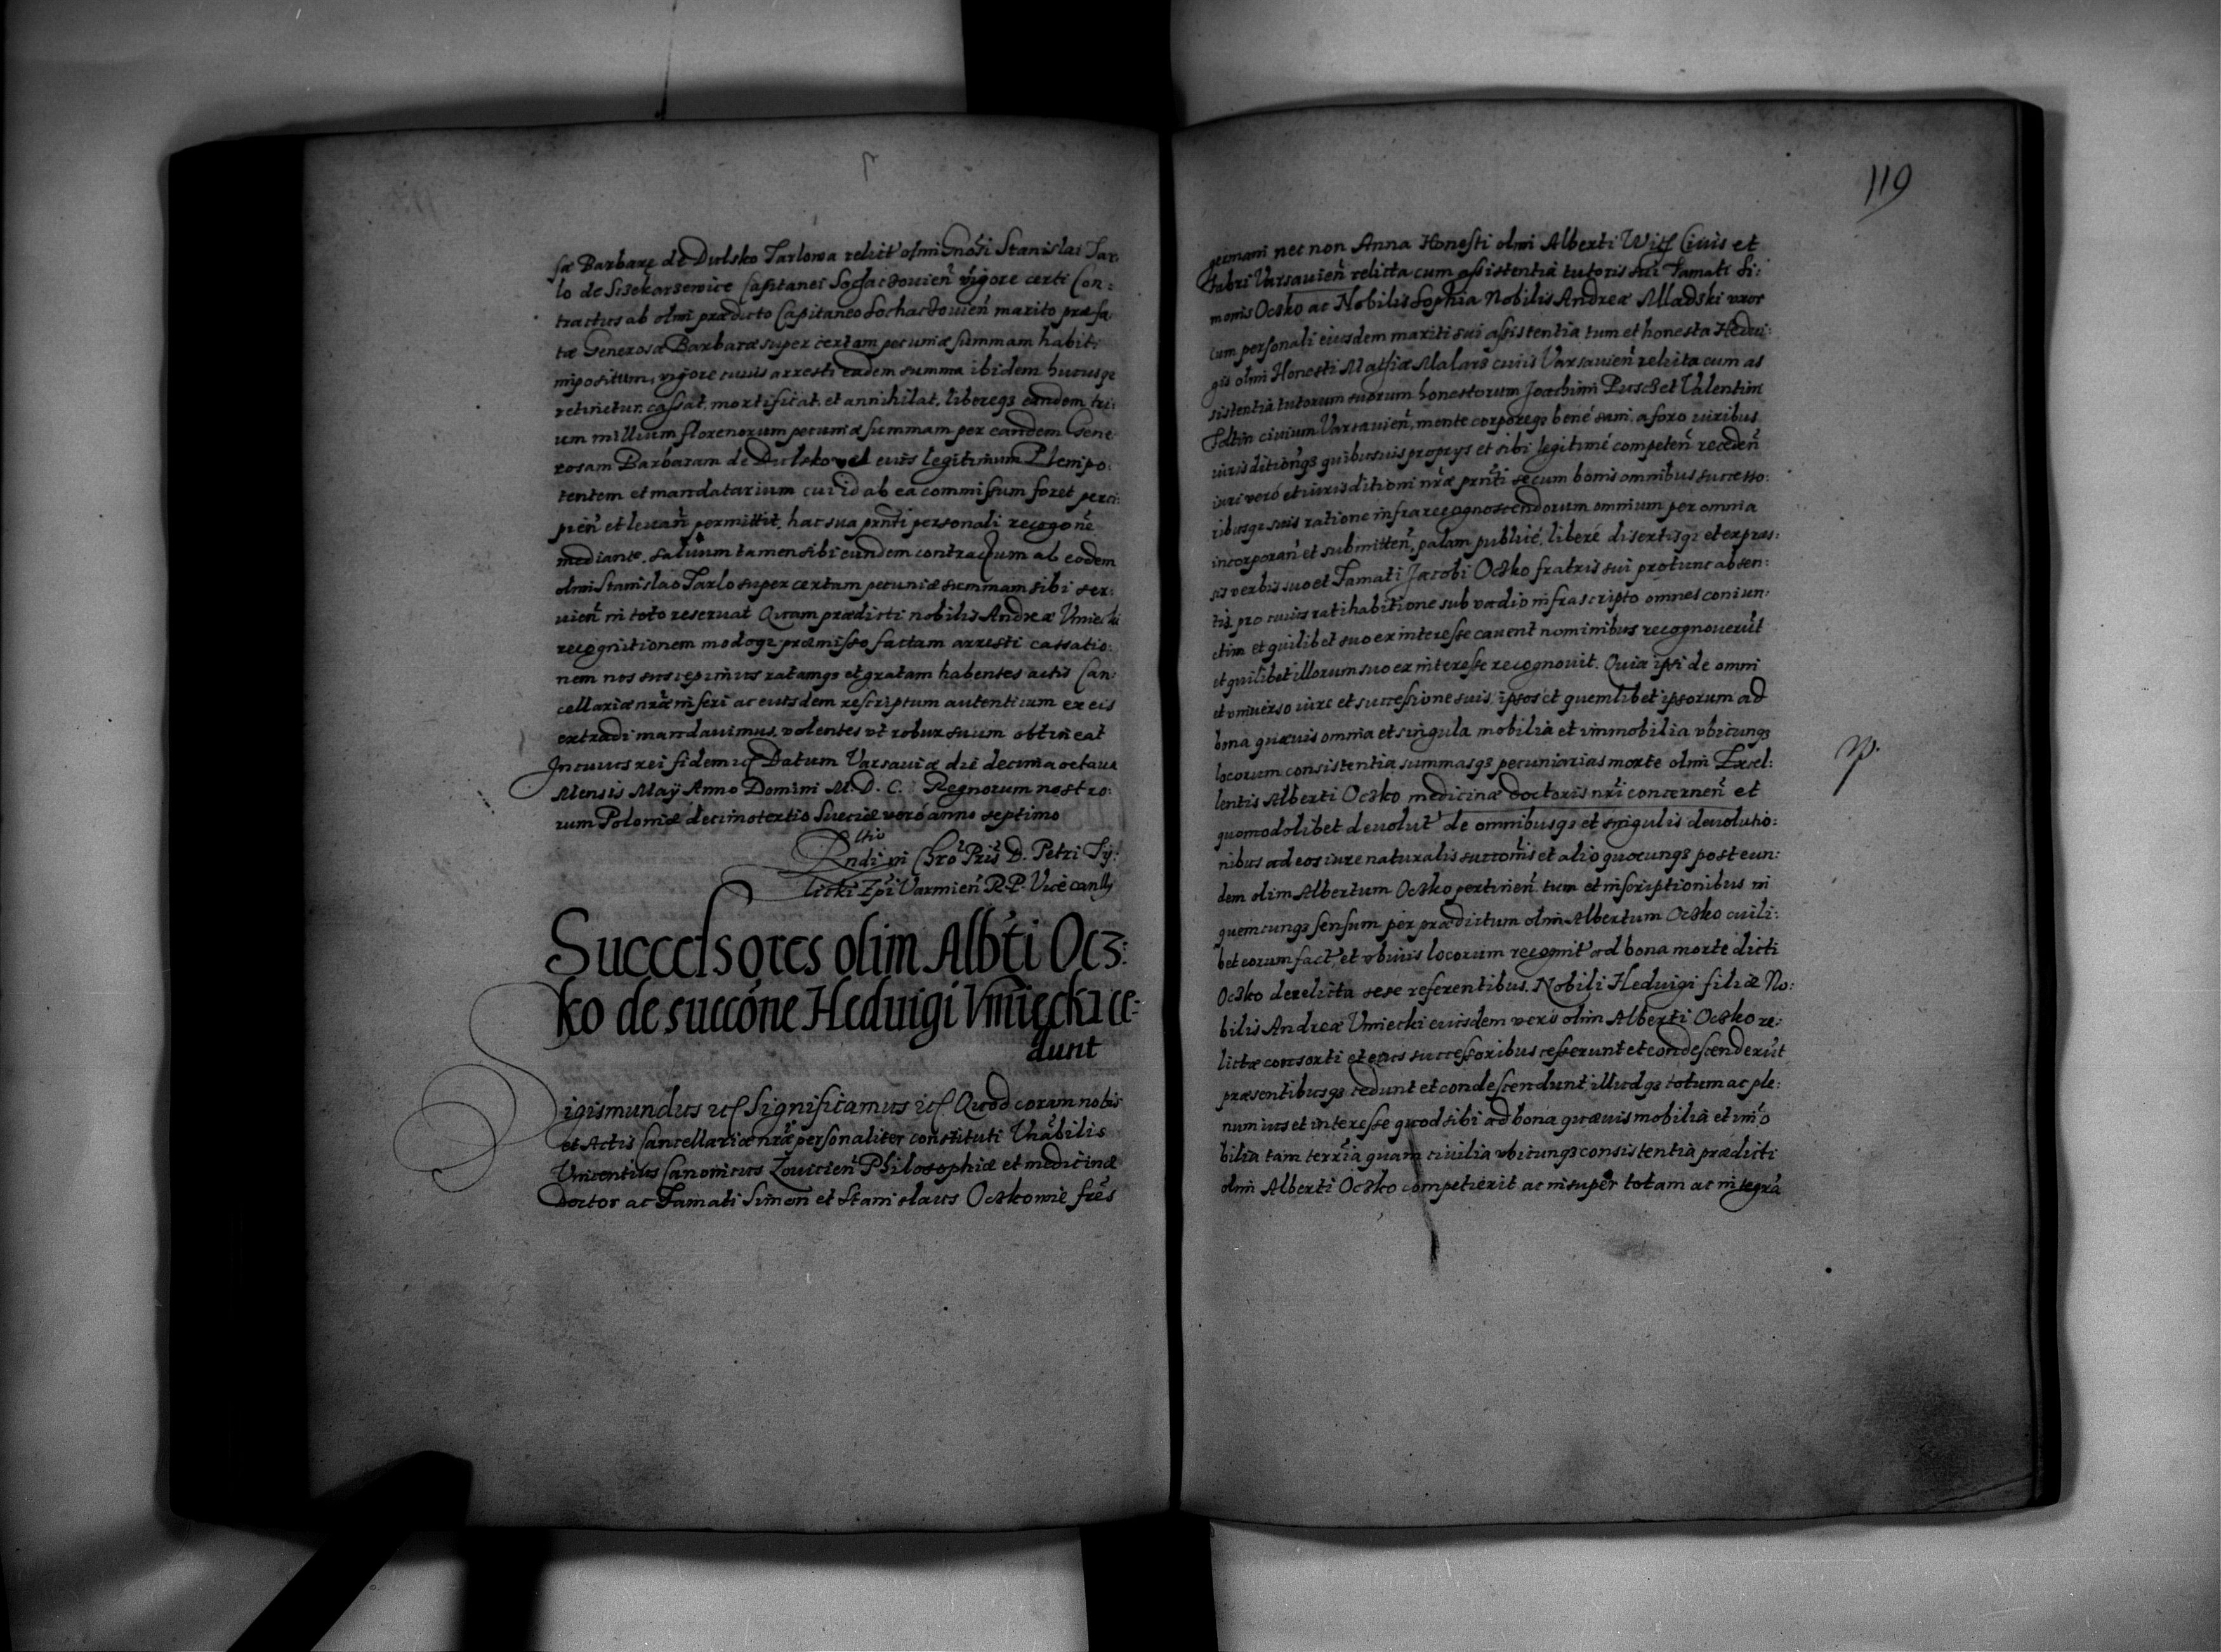 sæ Barbaræ de Dulsko Tarlowa relict olim Gnosi Stanislai Tar:
lo de Sczekarzewice Capitanei Sochaczouien vigore certi Con:
tractus ab olim prædicto Capitaneo Sochaczouien marito præfa:
tæ Generosæ Barbaræ super certam pecuniæ summam habit:
impositum, vigore cuius arresti eadem summa ibidem hucusq3
retinetur, cassat, mortificat, et annihilat, libereq3 eandem tri:
um millium florenorum pecuniæ summam per eandem Gene:
rosam Barbaram de Dulsko vel eius legitimum Plenipo:
tentem et mandatarium cui id ab ea commissum foret perci:
pien et leuan permittit, hac sua prnti personali recogone
mediante. saluum tamen sibi eundem contractum ab eodem
olim Stanislao Tarlo super certam pecuniæ summam sibi ser:
uien in toto reseruat Quam prædicti nobilis Andreæ Vmiecki
recognitionem modoq3 præmisso factam arresti cassatio:
nem nos suscepimus ratamq3 et gratam habentes actis Can:
cellariæ nræ inseri ac eiusdem rescriptum autenticum ex eis
extradi mandauimus, volentes vt robur suum obtineat
In cuius rei fidem etc Datum Varsauiæ die decima octaua
Mensis Maÿ Anno Domini M. D. C. Regnorum nostro:
rum Poloniæ decimotertio Sueciæ veró anno septimo
Rltio
Rndi in Chro Pris D. Petri Ty:
licki Epi Varmien R. P. Vicecanllÿ
Successores olim Albti Ocz:
ko de succóne Heduigi Vmiecki ce:
dunt
Sigismundus etc Significamus etc Quod coram nobis
et Actis Cancellariæ nræ personaliter constituti Vnabilis
Vincentius Canonicus Louicien Philosophiæ et medicinæ
Doctor ac Famati Simon et Stanislaus Oczkowie fres
germani nec non Anna Honesti olim Alberti Witz Ciuis et
Fabri Varsauien relicta cum assistentia tutoris sui Famati Si:
monis Oczko ac Nobilis Sophia Nobilis Andreæ Mladski vxor
cum personali eiusdem mariti sui assistentia tum et honesta Hedui:
gis olim Honesti Mathiæ Malarz ciuis Varsauien relicta cum as
sistentia tutorum suorum honestorum Joachim Pusch et Valentim
Foltin ciuium Varsauien, mente corporeq3 bené sani, a foro viribus
iurisditionq3 quibusuis proprys et sibi legitimé competen receden
iuri veró et iurisditioni nræ prnti se cum bonis omnibus successo:
ribusq3 suis ratione infra recognoscendorum omnium per omnia
incorporan et submitten, palam publicé, liberé disertisq3 et expræs:
sis verbis suo et Famati Jacobi Oczko fratris sui pro tunc absen:
tis, pro cuius ratihabitione sub vadio infrascripto omnes coniun:
ctim et quilibet suo ex interesse cauent nominibus recognouerut
et quilibet illorum suo ex interesse recognouit. Quia ipsi de omni
et vniuerso iure et successione suis, ipsos et quemlibet ipsorum ad
bona quæuis omnia et singula mobilia et immobilia vbicunq3
locorum consistentia summasq3 pecuniarias morte olim Excel:
lentis Alberti Oczko medicinæ doctoris nri concernen et
quomodolibet deuolut de omnibusq3 et singulis deuolutio:
nibus ad eos iure naturalis succonis et alio quocunq3 post eun:
dem olim Albertum Oczko pertinen tum et inscriptionibus in
quemcunq3 sensum per prædictum olim Albertum Oczko cuili:
bet eorum fact, et vbiuis locorum recognit ad bona morte dicti
Oczko derelicta sese referentibus, Nobili Heduigi filiæ No:
bilis Andreæ Vmiecki eiusdem vero olim Alberti Oczko re:
lictæ consorti et eius successoribus cesserunt et condescenderut
præsentibusq3 cedunt et condescendunt, illudq3 totum ac ple:
num ius et interesse quod sibi ad bona quæuis mobilia et imo
bilia tam terria quam ciuilia vbicunq3 consistentia prædicti
olim Alberti Oczko competierit ac insuper totam ac integra
119